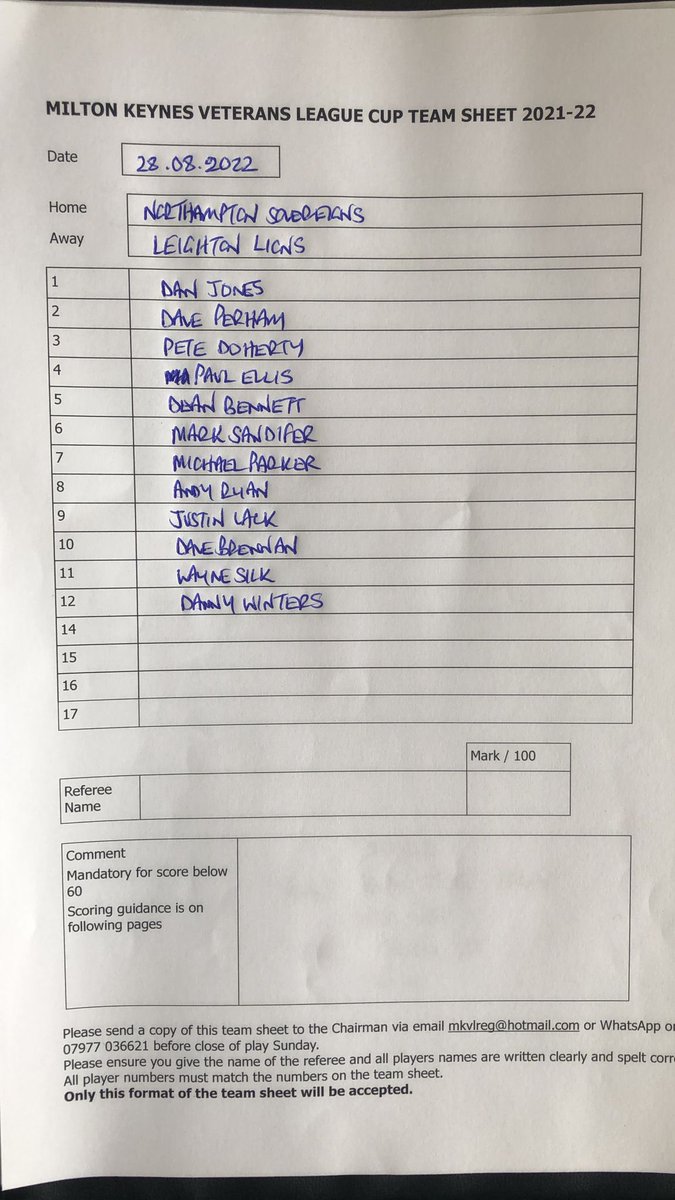 MILTON KEYNES VETERANS LEAGUE CUP TEAM SHEET 2021-22
Date 28.08.2022
Home NORTHAMPTON SOVEREIGNS
Away LEIGHTON LIONS
1 DAN JONES
2 DAVE PERHAM
3 PETE DOHERTY
4 PAUL ELLIS
5 DEAN BENNETT
6 MARK SANDIFER
7 MICHAEL PARKER
8 ANDY RYAN
9 JUSTIN LACK
10 DAVE BRENNAN
11 WAYNE SILK
12 DANNY WINTERS
14
15
16
17
Mark / 100
Referee
Name
Comment
Mandatory for score below
60
Scoring guidance is on
following pages
Please send a copy of this team sheet to the Chairman via email mkvlreg@hotmail.com or WhatsApp
07977 036621 before close of play Sunday.
Please ensure you give the name of the referee and all players names are written clearly and spelt
All player numbers must match the numbers on the team sheet.
Only this format of the team sheet will be accepted.